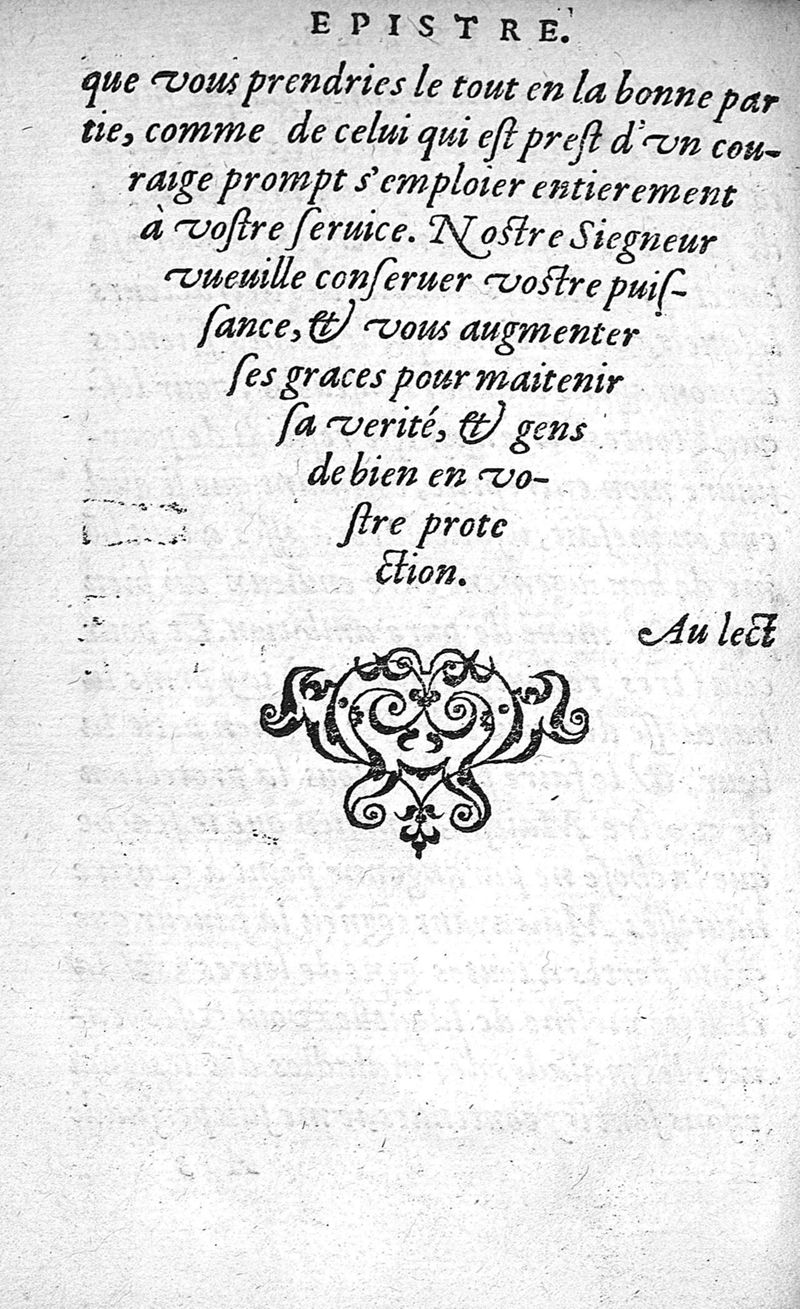 EPISTRE.
que vous prendries le tout en la bonne par
tie, comme de celui qui est prest d'vn cou-
raige prompt s'emploier entierement
à vostre seruice. Nostre Siegneur
vueuille conseruer vostre puis-
sance, & vous augmenter
ses graces pour maitenir
sa verité, & gens
de bien en vo-
stre prote
ction.
Au lect